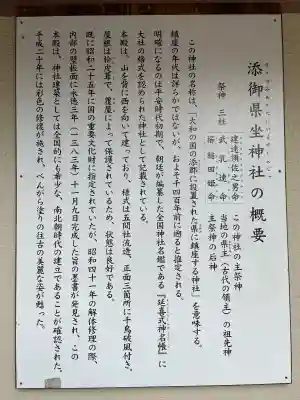 添御県坐神社の概要
祭神 三社
建速須佐之男命 この神社の主祭神
武乳速命 当地の県主（古代の領主）の祖先神
櫛稲田姫命 主祭神の后神
この神社の名称は、「大和の国の添郡に設置された県に鎮座する神社」を意味する。
鎮座の年代は詳らかではないが、およそ千四百年前に遡ると推定される。
明確になるのは平安時代初期で、朝廷が編纂した全国神社名鑑である『延喜式神名帳』に
大社の格式を認められた神社として記載されている。
本殿は、山を背に西を向いて建っており、様式は五間社流造、正面三箇所に千鳥破風付き、
屋根は桧皮葺で、覆屋によって保護されているため、状態は良好である。
既に昭和二十五年に国の重要文化財に指定されていたが、昭和四十一年の解体修理の際、
内部の壁板面に永徳三年（一三八三年）十一月九日完成した旨の墨書が発見され、この
本殿は、神社建築としては全国的にも希少な、南北朝時代の建立であることが確認された。
平成二十年には彩色の修復が施され、べんがら塗りの往古の美麗な姿が甦った。